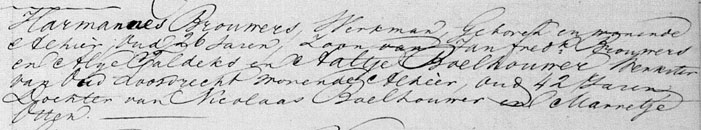 Harmannes Brouwers, Werkman, Geboren en wonende
Alhier, Oud 26 Jaren, Zoon van Jan Fredk. Brouwers
en Altje Faldeks en Aaltje Boelhouwer Werkster
van Oud Loosdrecht wonende Alhier, oud 42 Jaren
Dochter van Nicolaas Boelhouwer en Marretje
Otten.